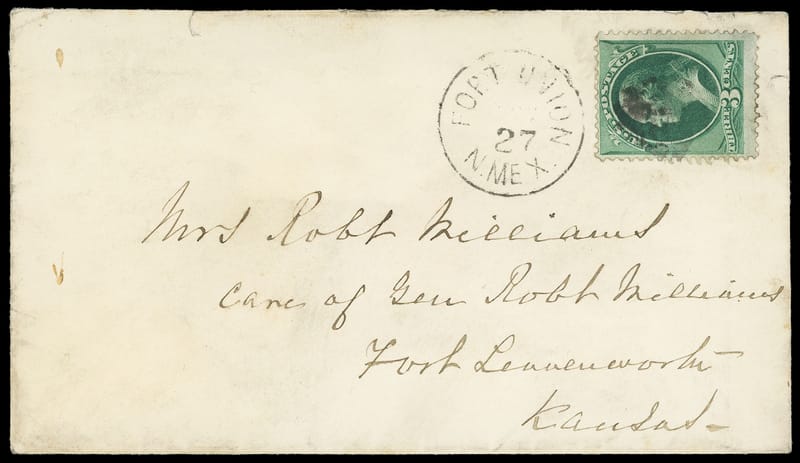 FORT UNION
27
N. MEX.
POSTAGE
3
Mrs Robt Williams
care of Gen Robt Williams
Fort Leavenworth
Kansas